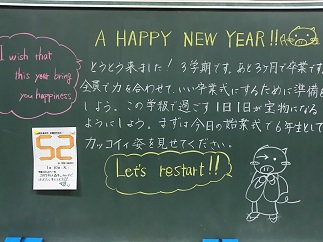 A HAPPY NEW YEAR!!
I wish that
this year bring
you happiness
とうとう来ました! 3学期です。あと3ヶ月で卒業です。
全員で力を合わせて、いい卒業式にするために準備を
しよう。この学級で過ごす1日1日が宝物になる
ようにしよう。まずは今日の始業式で6年生として
カッコイイ姿を見せてください。
Let's restart!!
52